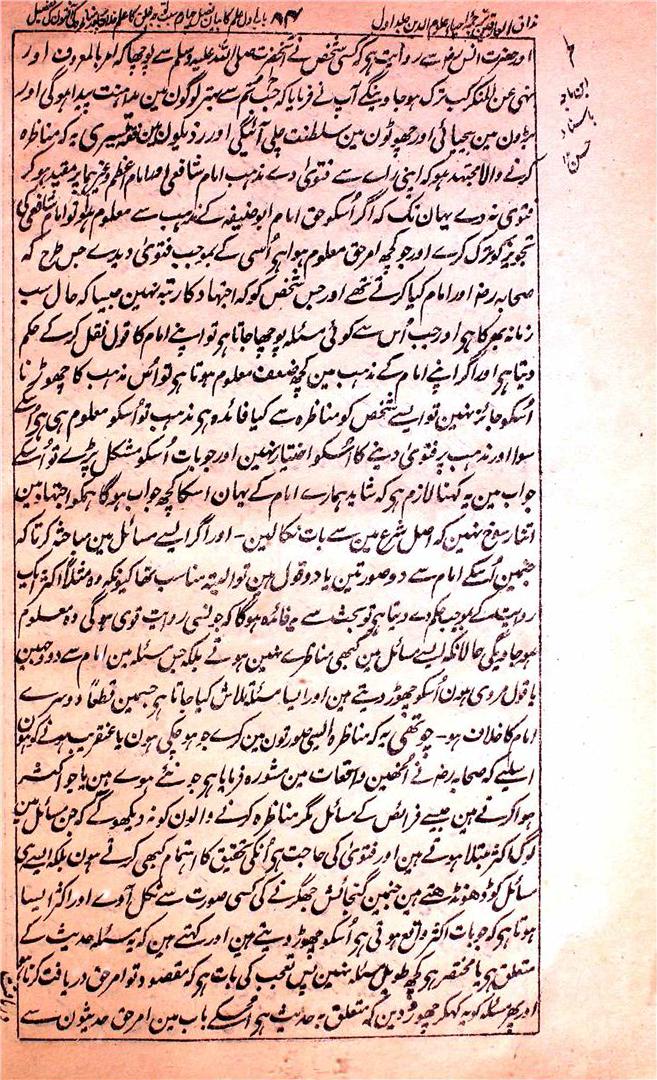 مذاق العارفین ترجمہ احیاء علوم الدین جلد اول ۸۴ باب اول علم کا بیان فصل
اور حضرت انس رضہ سے روایت ہر کہ کسی شخص نے آنحضرت صلی اللہ علیہ وسلم سے پوچھا کہ امر بالمعروف اور
نہی عن المنکر کب ترک ہو جاوینگے آپ نے فرمایا کہ جب تم سے بہتر لوگون مین مداہنت پیدا ہوگی اور
بڑون مین بیحیائی اور چھوٹون مین سلطنت چلی آئیگی اور رذیلون مین فقہ تیسری یہ کہ مناظرہ
کرنے والا مجتہد ہو کہ اپنی راے سے فتویٰ دے مذہب امام شافعی اور امام اعظم وغیرہما پر مقید ہو کر
فتویٰ نہ دے یہان تک کہ اگر اُسکو حق امام ابو حنیفہ کے مذہب سے معلوم ہو تو امام شافعی کی
تجویز کو ترک کرے اور جو کچھ امر حق معلوم ہوا ہر اُسی کے بموجب فتویٰ دیدے جس طرح کہ
صحابہ رضہ اور امام کیا کرتے تھے اور جس شخص کو کہ اجتہاد کا رتبہ نہین جیسا کہ حال سب
زمانہ بھر کا ہر اور جب اُس سے کوئی مسئلہ پوچھا جاتا ہر تو اپنے امام کا قول نقل کرکے حکم
دیتا ہر اور اگر اپنے امام کے مذہب مین کچھ ضعف معلوم ہوتا ہر تو اُس مذہب کا چھوڑنا
اُسکو جائز نہین تو ایسے شخص کو مناظرہ سے کیا فائدہ ہر مذہب تو اُسکو معلوم ہی ہر اُسکے
سوا اور مذہب پر فتویٰ دینے کا اُسکو اختیار نہین اور جو بات اُسکو مشکل پڑے تو اُسکے
جواب مین یہ کہنا لازم ہر کہ شاید ہمارے امام کے یہان اسکا کچھ جواب ہوگا ہمکو اجتہاد مین
اتنا رسوخ نہین کہ اصل شرع مین سے بات نکالین - اور اگر ایسے مسائل مین مباحثہ کرتا کہ
جنمین اُسکے امام سے دو صورتین یا دو قول ہین تو البتہ مناسب تھا کیونکہ وہ مثلاً اکثر ایک
روایت کے بموجب حکم دے دیتا ہر تو بحث سے یہ فائدہ ہوگا کہ جونسی روایت قوی ہوگی وہ معلوم
ہو جاویگی حالانکہ ایسے مسائل مین کبھی مناظرے نہین ہوتے بلکہ جس مسئلہ مین امام سے دو وجہین
یا قول مروی ہون اُسکو چھوڑ دیتے ہین اور ایسا مسئلہ تلاش کیا جاتا ہر جسمین قطعاً دوسرے
امام کا خلاف ہو - چوتھی یہ کہ مناظرہ ایسی صورتون مین کرے جو ہو چکی ہون یا عنقریب ہونے کو ہون
اسلیے کہ صحابہ رضہ نے اُنھین واقعات مین مشورہ فرمایا ہر جو نئے ہوے ہین یا جو اکثر
ہوا کرتے ہین جیسے فرائض کے مسائل مگر مناظرہ کرنے والون کو نہ دیکھوگے کہ جن مسائل مین
لوگ اکثر مبتلا ہوتے ہین اور فتویٰ کی حاجت ہر اُنکی تحقیق کا اہتمام کبھی کرتے ہون بلکہ ایسے ہی
مسائل کو ڈھونڈھتے ہین جنمین گنجائش جھگڑنے کی کسی صورت سے نکل آوے اور اکثر ایسا
ہوتا ہر کہ جو بات اکثر واقع ہوتی ہر اُسکو چھوڑ دیتے ہین اور کہتے ہین کہ یہ مسئلہ حدیث کے
متعلق ہر یا مختصر ہر کچھ طویل مسئلہ نہین پس تعجب کی بات ہر کہ مقصود تو امر حق دریافت کرنا ہو
اور پھر مسئلہ کو یہ کہکر چھوڑ دین کہ متعلق بہ حدیث ہر اُسکے باب مین امر حق حدیثون سے
ابن ماجہ
باسناد
حسن ۱۲
دریافت